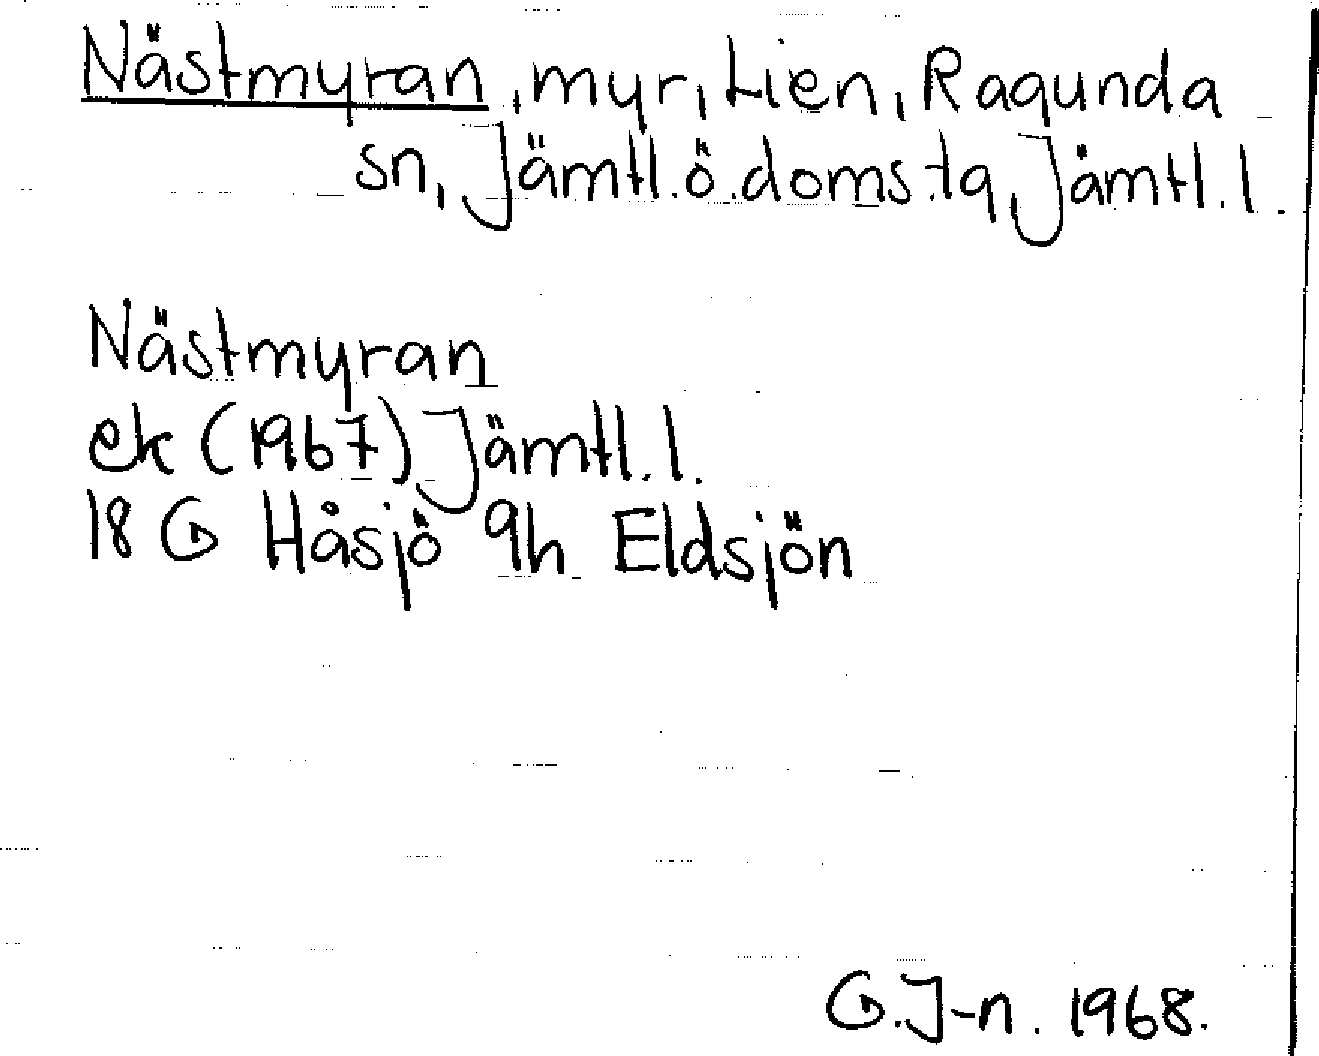 Nästmyran, myr, Lien, Ragunda
sn, Jämtl.ö.doms.tg, Jämtl.l.
Nästmyran
ek (1967) Jämtl.l.
18 G Håsjö 9h Eldsjön
G.J-n. 1968.